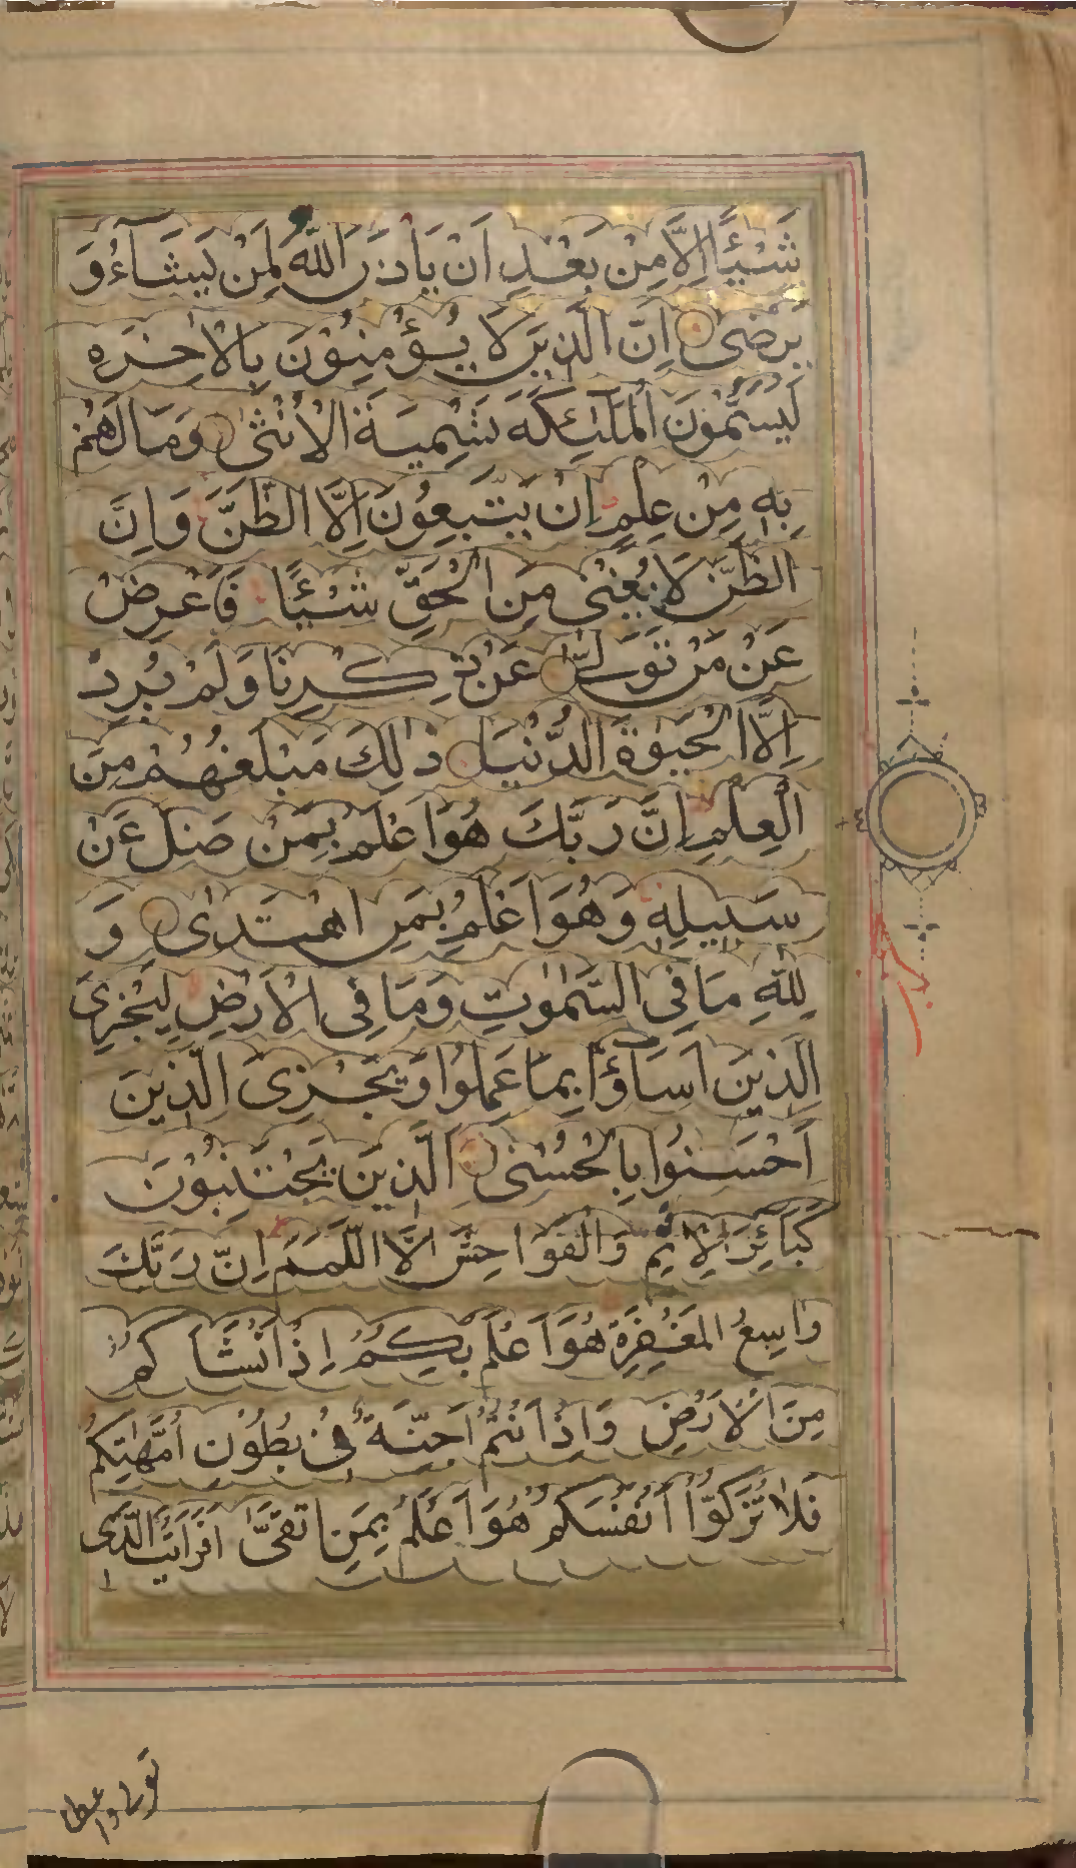 شَيْئًا اِلَّا مِنْ بَعْدِ اَنْ يَأْذَنَ اللّٰهُ لِمَنْ يَشَآءُ وَ
يَرْضٰى اِنَّ الَّذِيْنَ لَا يُؤْمِنُوْنَ بِالْاٰخِرَةِ
لَيُسَمُّوْنَ الْمَلٰٓئِكَةَ تَسْمِيَةَ الْاُنْثٰى وَمَا لَهُمْ
بِهٖ مِنْ عِلْمٍ اِنْ يَتَّبِعُوْنَ اِلَّا الظَّنَّ وَاِنَّ
الظَّنَّ لَا يُغْنِيْ مِنَ الْحَقِّ شَيْئًا فَاَعْرِضْ
عَنْ مَنْ تَوَلّٰى عَنْ ذِكْرِنَا وَلَمْ يُرِدْ
اِلَّا الْحَيٰوةَ الدُّنْيَا ذٰلِكَ مَبْلَغُهُمْ مِنَ
الْعِلْمِ اِنَّ رَبَّكَ هُوَ اَعْلَمُ بِمَنْ ضَلَّ عَنْ
سَبِيْلِهٖ وَهُوَ اَعْلَمُ بِمَنِ اهْتَدٰى وَ
لِلّٰهِ مَا فِي السَّمٰوٰتِ وَمَا فِي الْاَرْضِ لِيَجْزِيَ
الَّذِيْنَ اَسَآؤُا بِمَا عَمِلُوْا وَيَجْزِيَ الَّذِيْنَ
اَحْسَنُوْا بِالْحُسْنٰى اَلَّذِيْنَ يَجْتَنِبُوْنَ
كَبَآئِرَ الْاِثْمِ وَالْفَوَاحِشَ اِلَّا اللَّمَمَ اِنَّ رَبَّكَ
وَاسِعُ الْمَغْفِرَةِ هُوَ اَعْلَمُ بِكُمْ اِذْ اَنْشَاَكُمْ
مِنَ الْاَرْضِ وَاِذْ اَنْتُمْ اَجِنَّةٌ فِيْ بُطُوْنِ اُمَّهٰتِكُمْ
فَلَا تُزَكُّوْا اَنْفُسَكُمْ هُوَ اَعْلَمُ بِمَنِ اتَّقٰى اَفَرَاَيْتَ الَّذِيْ
تولى واعطى